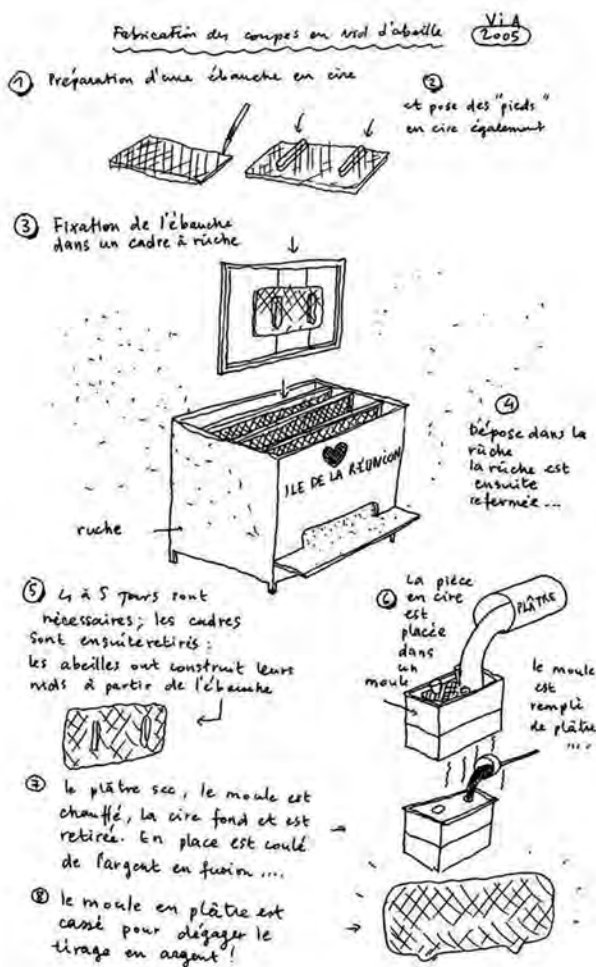 Fabrication des coupes en nid d'abeille
ViA
2005
1 Préparation d'une ébauche en cire
2
et pose des "pieds"
en cire également
3 Fixation de l'ébauche
dans un cadre à rûche
4
Dépose dans la
rûche
la rûche est
ensuite
refermée...
ILE DE LA RÉUNION
ruche
5 4 à 5 jours sont
nécessaires; les cadres
sont ensuite retirés:
les abeilles ont construit leurs
nids à partir de l'ébauche
6 La pièce
en cire
est
placée
dans
un
moule
PLÂTRE
le moule
est
remplè
de plâtre
....
7 le plâtre sec, le moule est
chauffé, la cire fond et est
retirée. En place est coulé
de l'argent en fusion ....
8 le moule en plâtre est
cassé pour dégager le
tirage en argent !